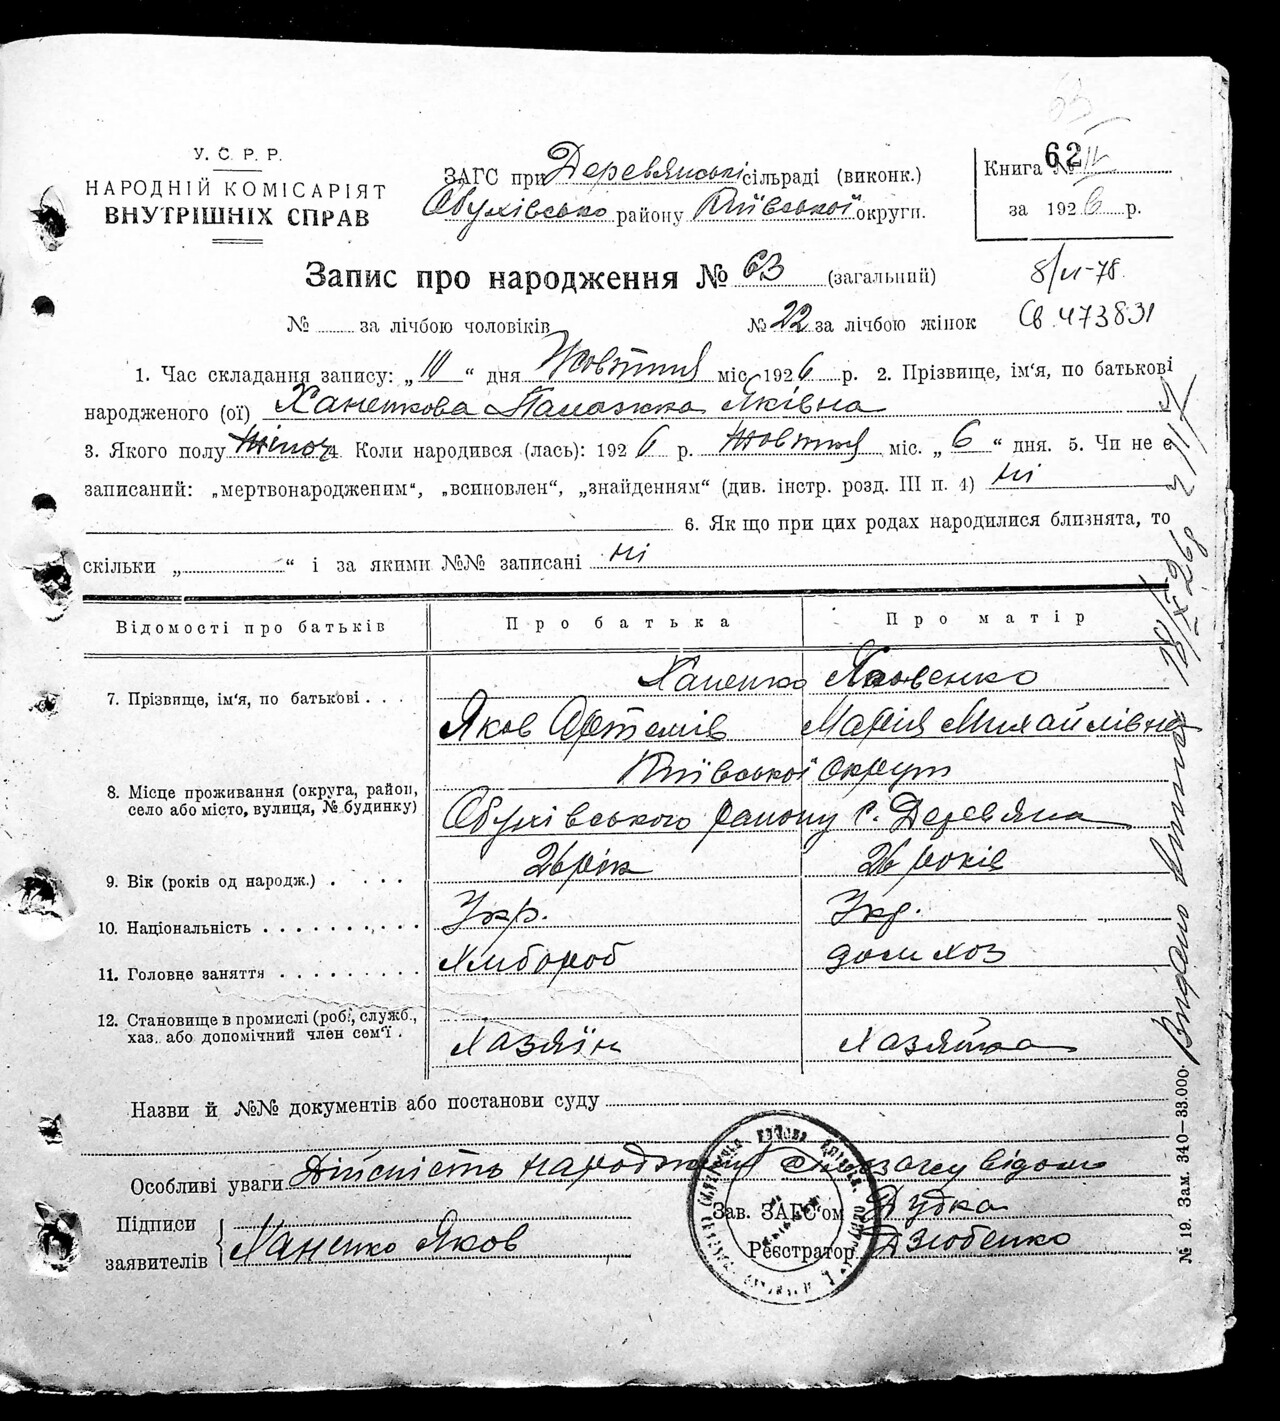 У. С. Р. Р.
НАРОДНІЙ КОМІСАРІЯТ
ВНУТРІШНІХ СПРАВ
ЗАГС при Деревянські сільраді (виконк.)
Обухівсько району Київської округи.
Книга № IV
62
за 1926 р.
Запис про народження № 63 (загальний)
8/VI-78.
№ за лічбою чоловіків № 22 за лічбою жінок
Св 473831
1. Час складання запису: „10“ дня Жовтня міс 1926 р. 2. Прізвище, ім‘я, по батькові
народженого (ої) Ханенкова Палажка Яківна
3. Якого полу Жіноч 4. Коли народився (лась): 1926 р. Жовтня міс. „6“ дня. 5. Чи не є
записаний: „мертвонародженим“, „всиновлен“, „знайденням“ (див. інстр. розд. III п. 4) ні
6. Як що при цих родах народилися близнята, то
скільки „ “ і за якими №№ записані ні
Відомості про батьків Про батька Про матір
7. Прізвище, ім‘я, по батькові . . . Ханенко Яковенко
Яков Артемів Марія Михайлівна
8. Місце проживання (округа, район, село або місто, вулиця, № будинку) Київської округи
Обухівського району с. Деревяна
9. Вік (років од народж.) . . . . 26 рік 26 років
10. Національність . . . . . . . . . . Укр. Укр.
11. Головне заняття . . . . . . . . . Хлібороб дом хоз
12. Становище в промислі (роб., служб.,
хаз. або допомічний член сем‘ї . Хазяїн Хазяйка
Назви й №№ документів або постанови суду
Особливі уваги Дійсність народження
Підписи
заявителів Ханенко Яков
Зав. ЗАГС‘ом Дудка
Реєстратор Дзюбенко
№ 19. Зам. 340—33.000.
Видано